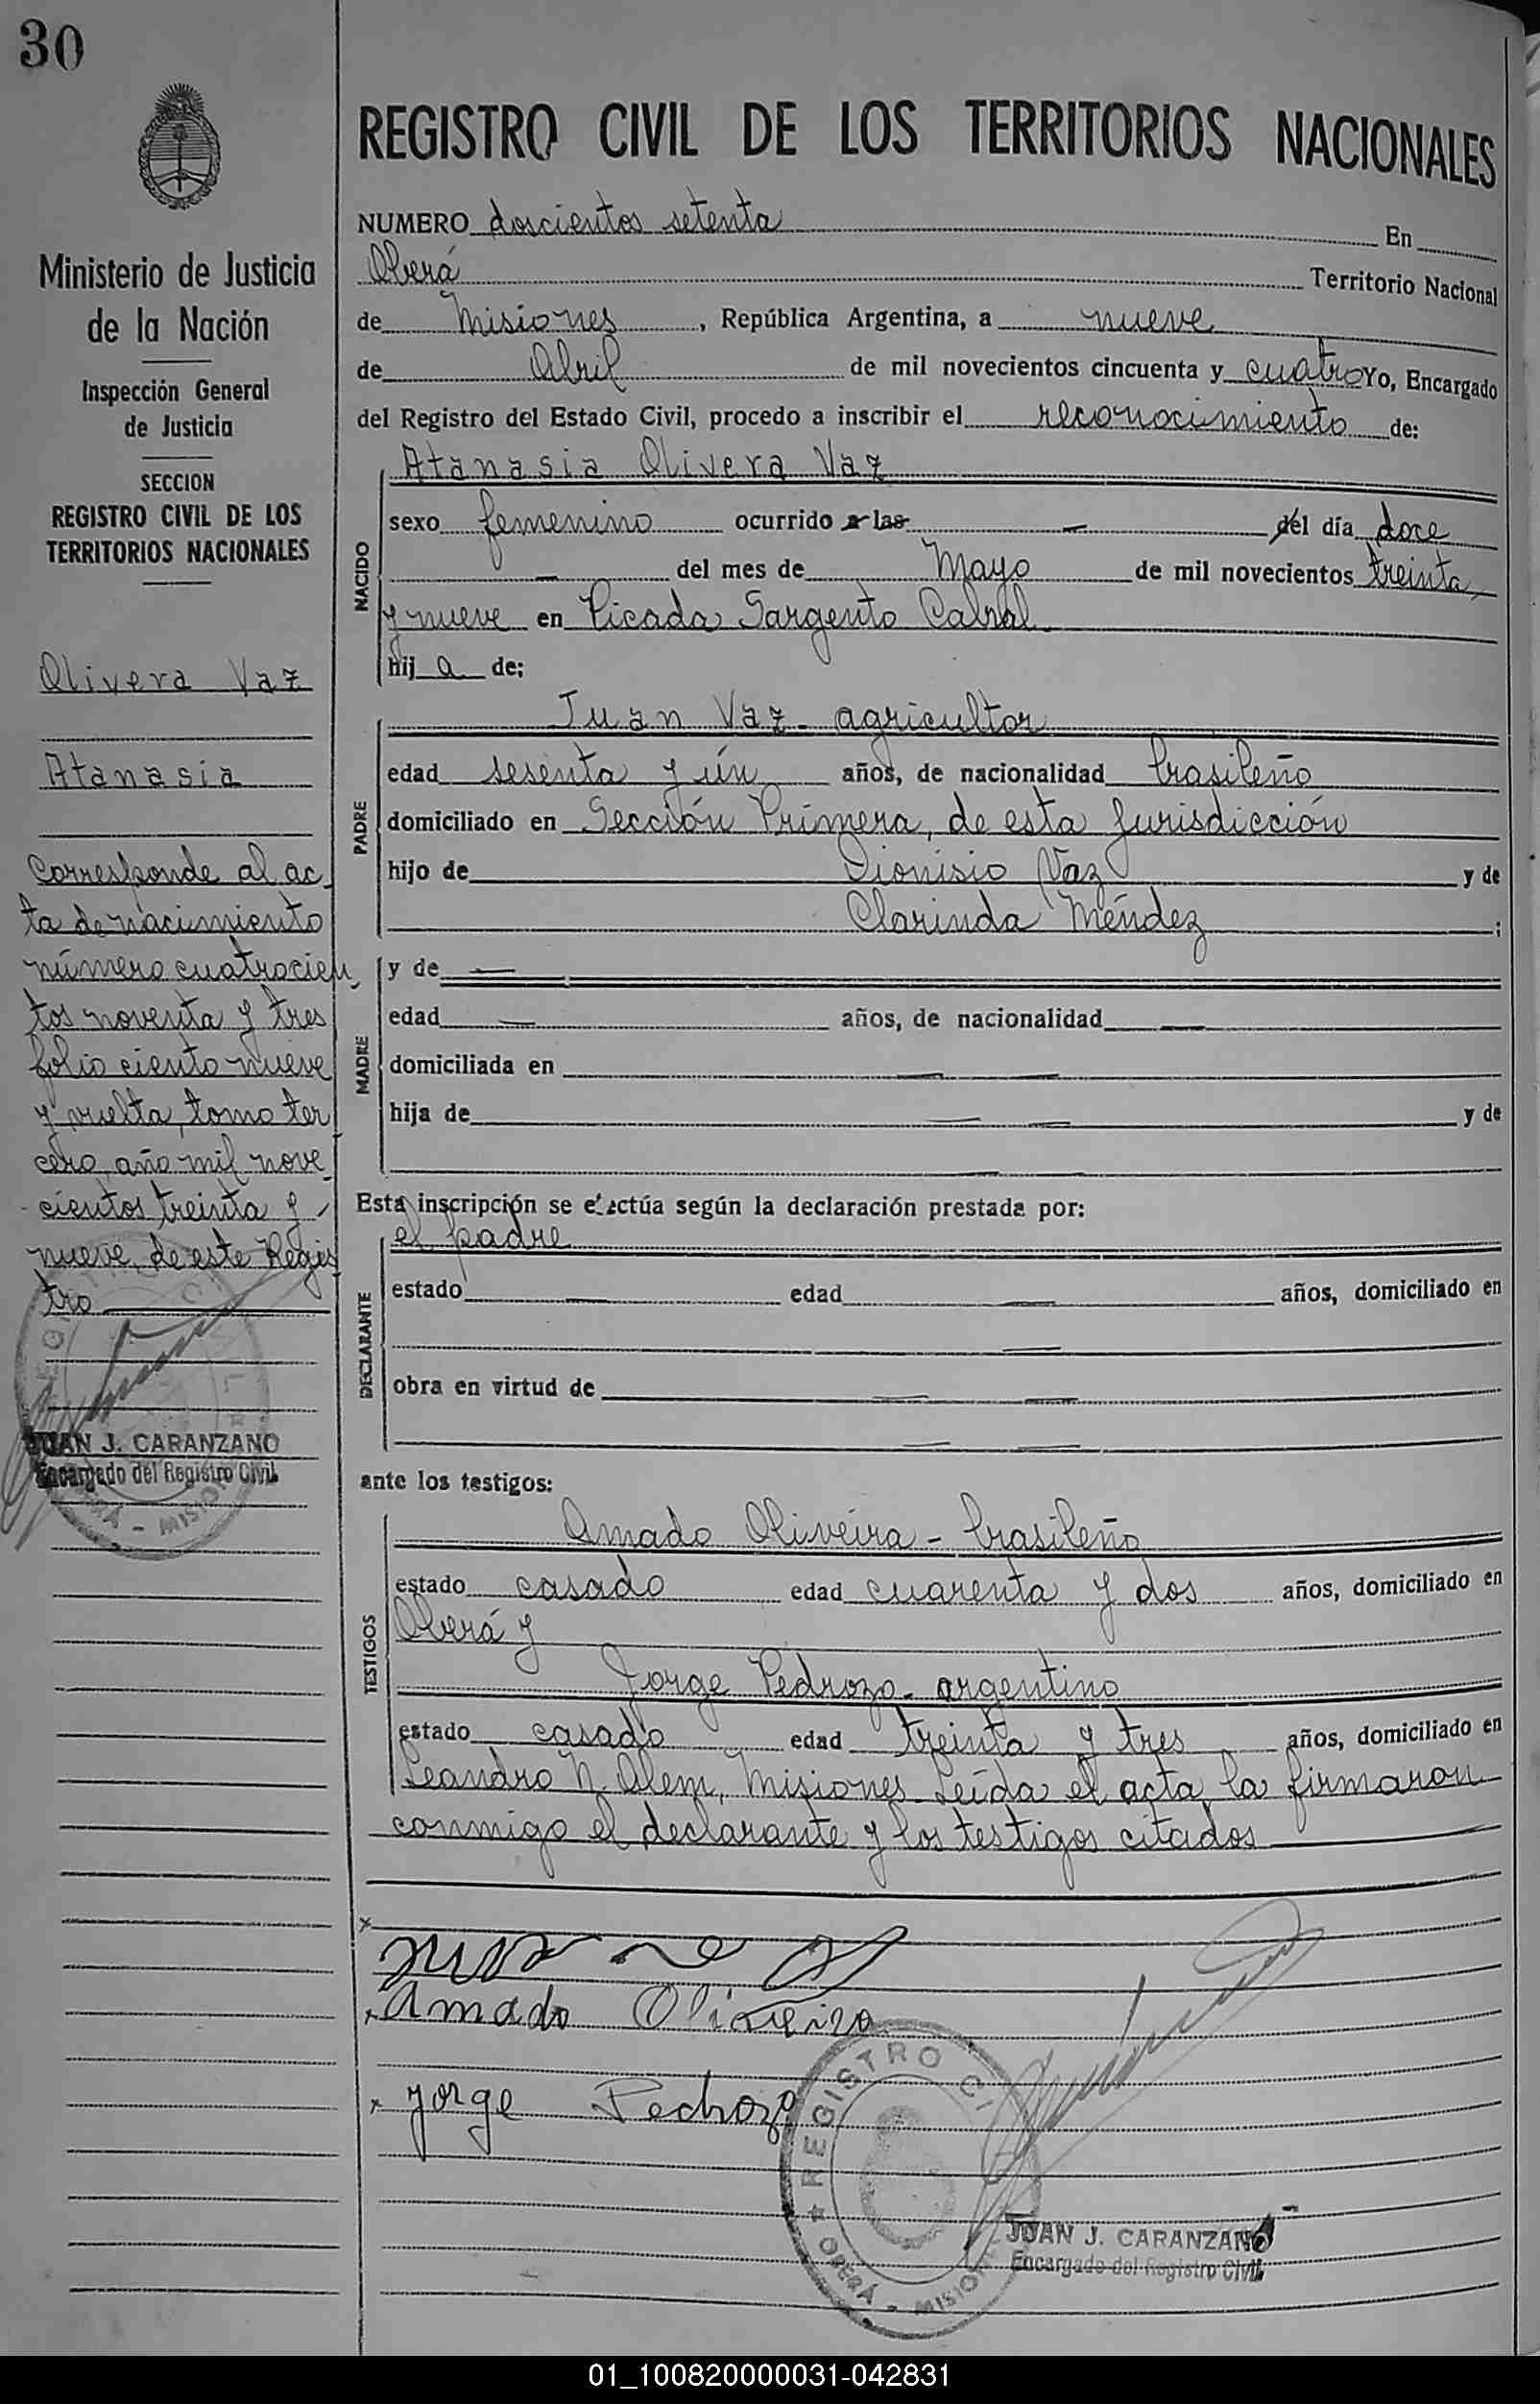 30
Ministerio de Justicia
de la Nación
Inspección General
de Justicia
SECCION
REGISTRO CIVIL DE LOS
TERRITORIOS NACIONALES
Olivera Vaz
Atanasia
Corresponde al ac
ta de nacimiento
número cuatrocien
tos noventa y tres
folio ciento nueve
y vuelta, tomo ter
cero, año mil nove
cientos treinta y
nueve, de este Regis
tro
JUAN J. CARANZANO
Encargado del Registro Civil
REGISTRO CIVIL DE LOS TERRITORIOS NACIONALES
NUMERO doscientos setenta En
Oberá Territorio Nacional
de Misiones, República Argentina, a nueve
de Abril de mil novecientos cincuenta y cuatro Yo, Encargado
del Registro del Estado Civil, procedo a inscribir el reconocimiento de:
NACIDO
Atanasia Olivera Vaz
sexo femenino ocurrido a las — del día doce
— del mes de Mayo de mil novecientos treinta
y nueve en Picada Sargento Cabral
hija de;
PADRE
Juan Vaz - agricultor
edad sesenta y ún años, de nacionalidad brasileño
domiciliado en Sección Primera, de esta jurisdicción
hijo de Dionisio Vaz y de
Clarinda Méndez ;
MADRE
y de —
edad — años, de nacionalidad —
domiciliada en — —
hija de — — y de
— —
Esta inscripción se efectúa según la declaración prestada por:
DECLARANTE
el padre
estado — edad — años, domiciliado en
—
obra en virtud de — —
— —
ante los testigos:
TESTIGOS
Amado Oliveira - brasileño
estado casado edad cuarenta y dos años, domiciliado en
Oberá y
Jorge Pedrozo - argentino
estado casado edad treinta y tres años, domiciliado en
Leandro N. Alem, Misiones. Leída el acta, la firmaron
conmigo el declarante y los testigos citados
x
x Amado Oliveira
x Jorge Pedrozo
REGISTRO CI
OBERÁ - MISIO
JUAN J. CARANZANO
Encargado del Registro Civil
01_100820000031-042831